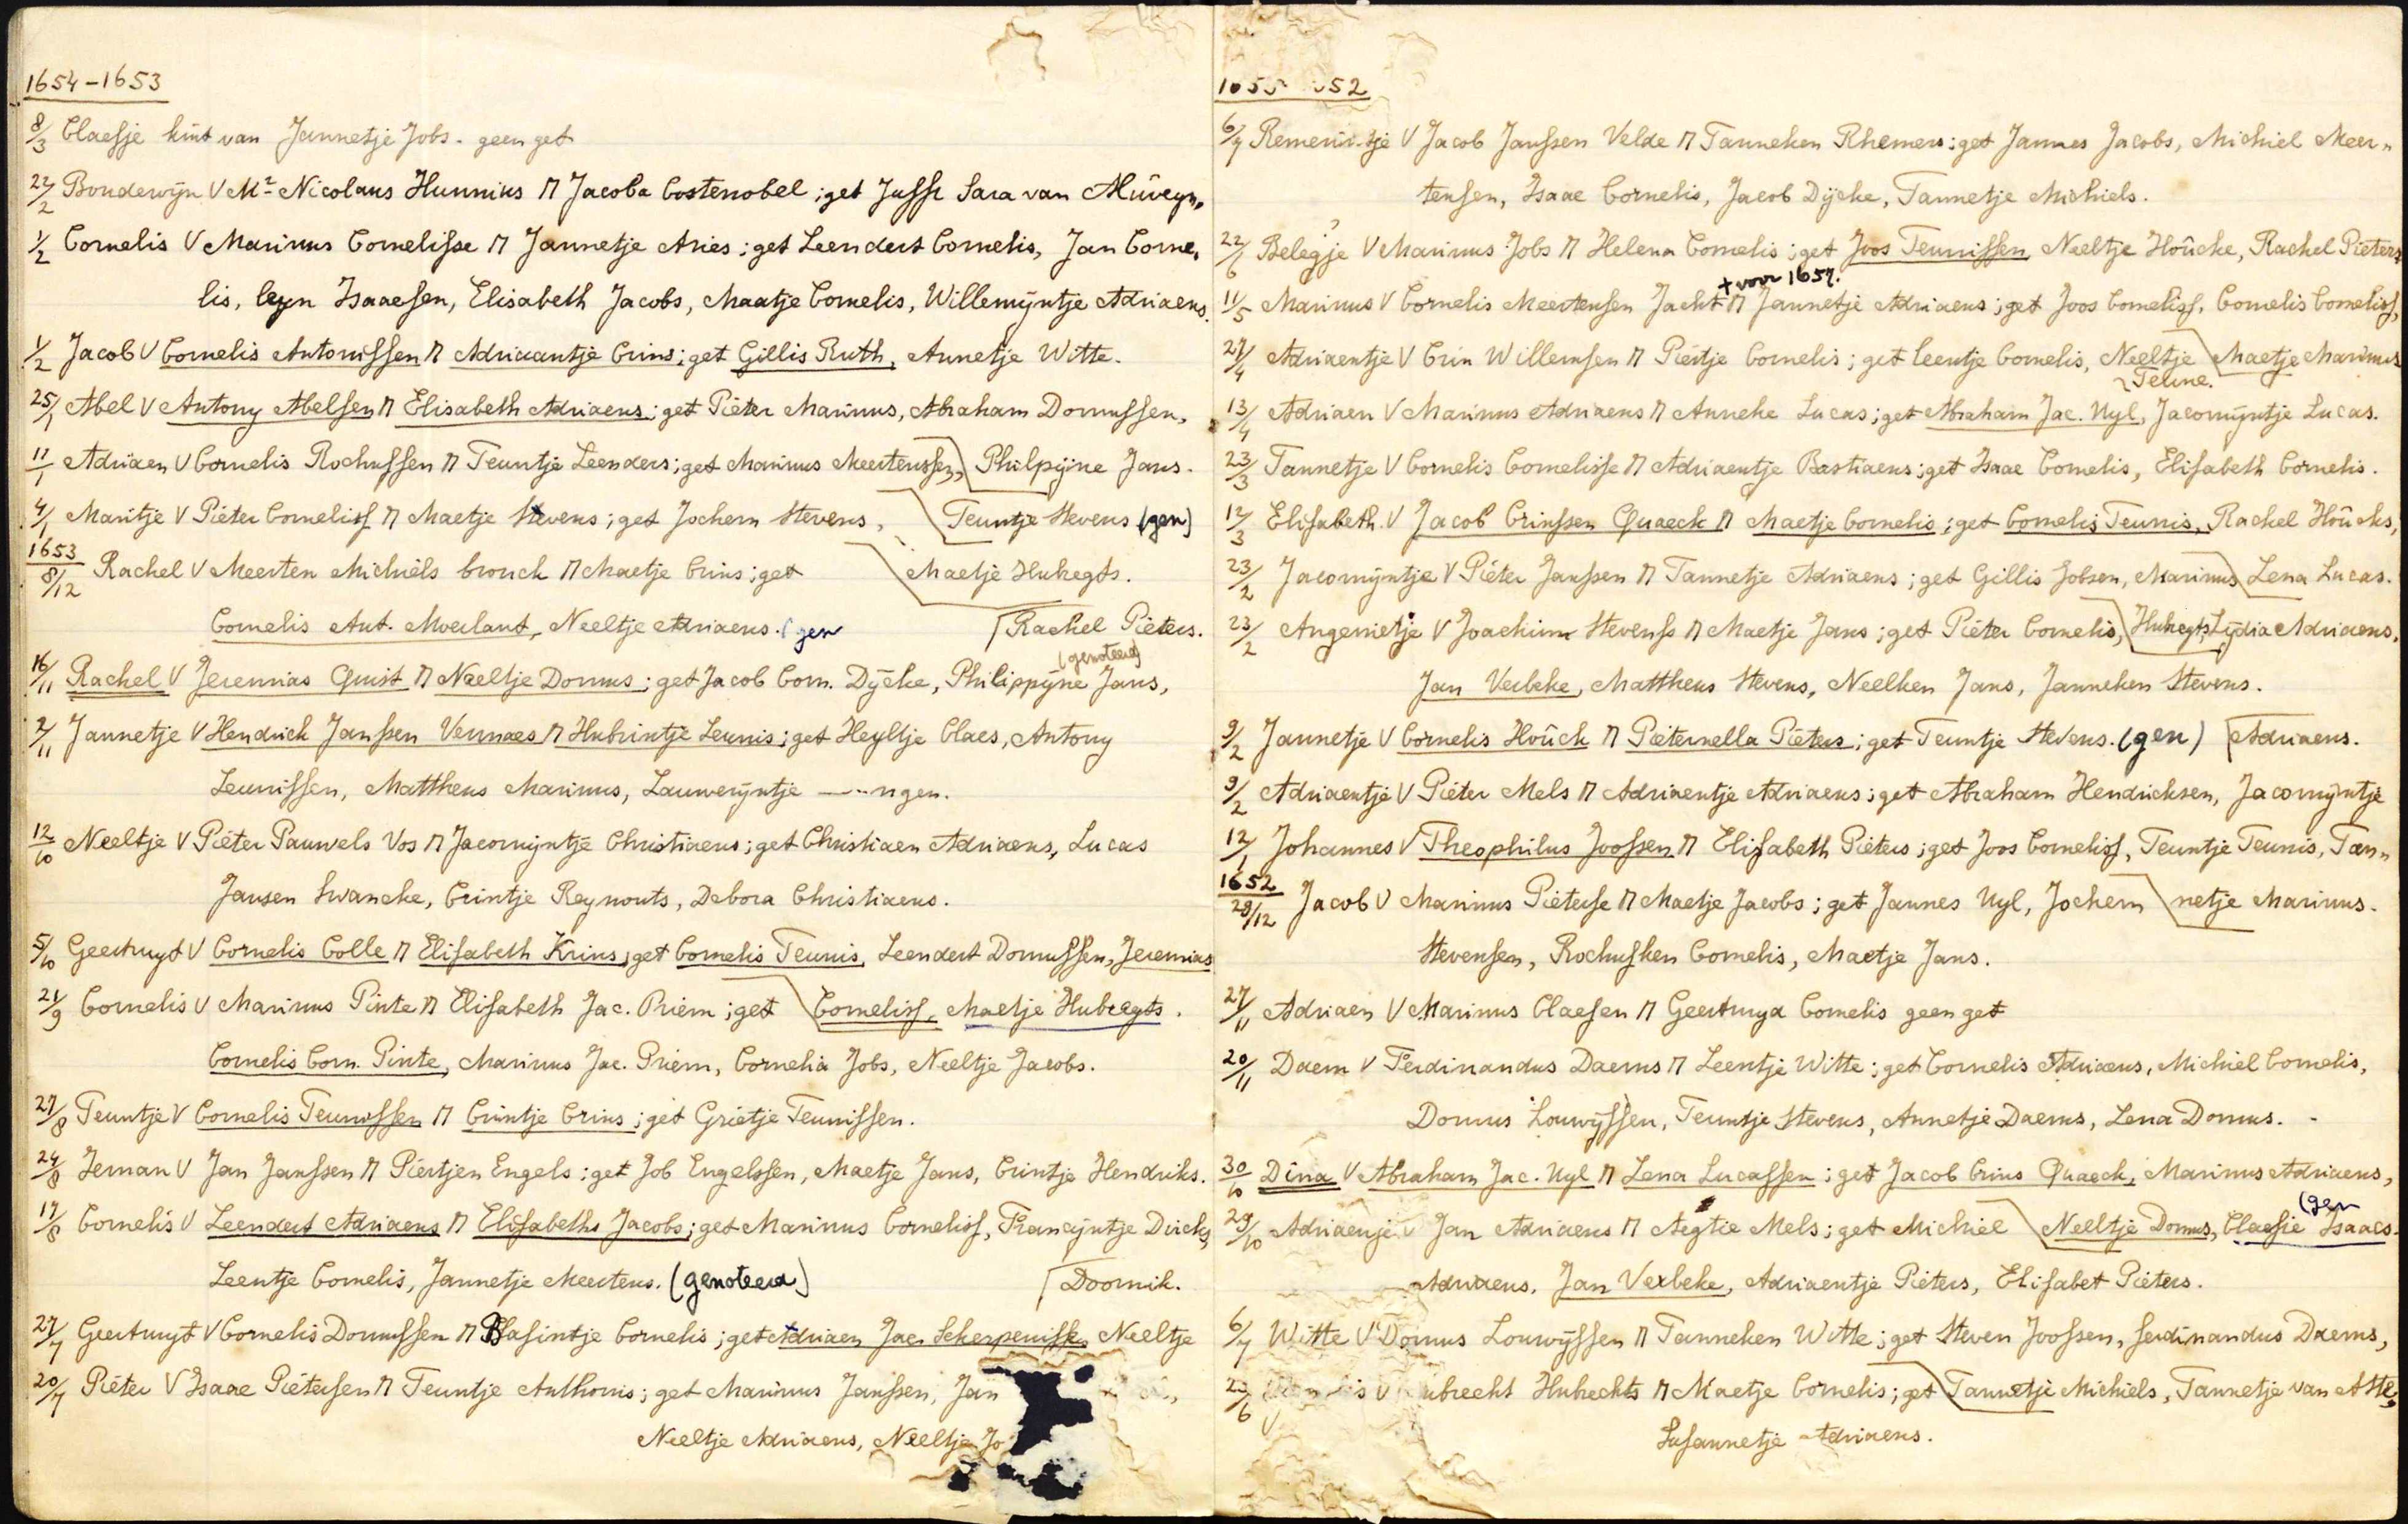 1654-1653
8/3 Claesje kint van Jannetje Jobs - geen get
22/2 Boudewijn V Mr Nicolaus Hunnius M Jacoba Costenobel ; get Juffr Sara van Mûveyn„
1/2 Cornelis V Marinus Cornelisse M Jannetje Aries ; get Leendert Cornelis, Jan Corne„
lis, leyn Isaacsen, Elisabeth Jacobs, Maatje Cornelis, Willemijntje Adriaens.
1/2 Jacob V Cornelis Antonissen M Adriaantje Crins ; get Gillis Ruth, Annetje Witte.
25/1 Abel V Antony Abelsen M Elisabeth Adriaens ; get Pieter Marinus, Abraham Domussen,
11/1 Adriaen V Cornelis Rochussen M Teuntje Leenders ; get Marinus Meertenssen, Philpijne Jans.
4/1 Maritje V Pieter Corneliss M Maetje Stevens ; get Jochem Stevens, Teuntje Stevens (gen)
1653
8/12 Rachel V Meerten Michiels brouck M Maetje Crins ; get Maetje Hubregts.
Cornelis Ant. Moerlant, Neeltje Adriaens. (gen Rachel Pieters.
(genoteerd)
16/11 Rachel V Jeremias Quist M Neeltje Domus ; get Jacob Corn. Dijcke, Philippijne Jans,
2/11 Jannetje V Hendrick Janssen Vermaes M Hubrintje Leunis ; get Heyltje Claes, Antony
Leunissen, Mattheus Marinus, Lauwerijntje —--ngen.
12/10 Neeltje V Pieter Pauwels Vos M Jacomijntje Christiaens ; get Christiaen Adriaens, Lucas
Jansen Swancke, Crintje Reynouts, Debora Christiaens.
5/10 Geertruyt V Cornelis Colle M Elisabeth Krins ; get Cornelis Teunis, Leendert Domussen, Jeremias
21/9 Cornelis V Marinus Pinte M Elisabeth Jac. Priem ; get Corneliss, Maetje Hubregts.
Cornelis Corn. Pinte, Marinus Jac. Priem, Cornelia Jobs, Neeltje Jacobs.
27/8 Teuntje V Cornelis Teunissen M Crintje Crins ; get Grietje Teunissen.
24/8 Jeman V Jan Janssen M Piertjen Engels ; get Job Engelssen, Maetje Jans, Crintje Hendriks.
17/8 Cornelis V Leendert Adriaens M Elisabeths Jacobs ; get Marinus Corneliss, Francijntje Dircks,
Leentje Cornelis, Jannetje Meertens. (genoteerd) Doornik.
27/7 Geertruyt V Cornelis Domussen M Blasintje Cornelis ; get Adriaen Jac. Scherpenisse Neeltje
20/7 Pieter V Isaac Pietersen M Teuntje Anthonis ; get Marinus Janssen, Jan
Neeltje Adriaens, Neeltje Jo
165 652
6/7 Jacob Janssen Velde M Tanneken Rhemers ; get Jannes Jacobs, Michiel Meer„
tensen, Isaac Cornelis, Jacob Dijcke, Tannetje Michiels.
?
22/6 Belegje V Marinus Jobs M Helena Cornelis ; get Joos Teunissen, Neeltje Hoûcke, Rachel Pieters
+ voor 1657.
11/5 Marinus V Cornelis Meertensen Jacht M Jannetje Adriaens ; get Joos Corneliss, Cornelis Corneliss,
27/4 Adriaentje V Crin Willemsen M Piertje Cornelis ; get leentje Cornelis, Neeltje Maetje Marinus
Teune.
13/4 Adriaen V Marinus Adriaens M Anneke Lucas ; get Abraham Jac. Uyl, Jacomijntje Lucas.
23/3 Tannetje V Cornelis Cornelisse M Adriaentje Bastiaens ; get Isaac Cornelis, Elisabeth Cornelis.
12/3 Elisabeth V Jacob Crinssen Quaeck M Maetje Cornelis ; get Cornelis Teunis, Rachel Hoûcks,
23/2 Jacomijntje V Pieter Janssen M Tannetje Adriaens ; get Gillis Jobsen, Marinus Lena Lucas.
23/2 Angenietje V Joachim Stevenss M Maetje Jans ; get Pieter Cornelis, Hubregts, Lydia Adriaens,
Jan Verbeke, Mattheus Stevens, Neelken Jans, Janneken Stevens.
9/2 Jannetje V Cornelis Hoûck M Pieternella Pieters ; get Teuntje Stevens. (gen) Adriaens.
9/2 Adriaentje V Pieter Mels M Adriaentje Adriaens ; get Abraham Hendricksen, Jacomijntje
12/1 Johannes V Theophilus Joossen M Elisabeth Pieters ; get Joos Corneliss, Teuntje Teunis, Tan„
1652
28/12 Jacob V Marinus Pieterse M Maetje Jacobs ; get Jannes Uyl, Jochem netje Marinus.
Stevensen, Rochusken Cornelis, Maetje Jans.
27/11 Adriaen V Marinus Claesen M Geertruyd Cornelis geen get
20/11 Daem V Ferdinandus Daems M Leentje Witte ; get Cornelis Adriaens, Michiel Cornelis,
Domus Louwijssen, Teuntje Stevens, Annetje Daems, Lena Domus.
30/10 Dina V Abraham Jac. Uyl M Lena Lucassen ; get Jacob Crins Quaeck, Marinus Adriaens,
(gen
29/10 Adriaenje V Jan Adriaens M Aegtie Mels ; get Michiel Neeltje Domus, Claesie Isaacs.
Adriaens, Jan Verbeke, Adriaentje Pieters, Elisabet Pieters.
6/7 Witte V Domus Louwijssen M Tanneken Witte ; get Steven Joossen, ferdinandus Daems,
23/6 V ubrecht Hubrechts M Maetje Cornelis ; get Tannetje Michiels, Tannetje van Atte,
Susannetje Adriaens.